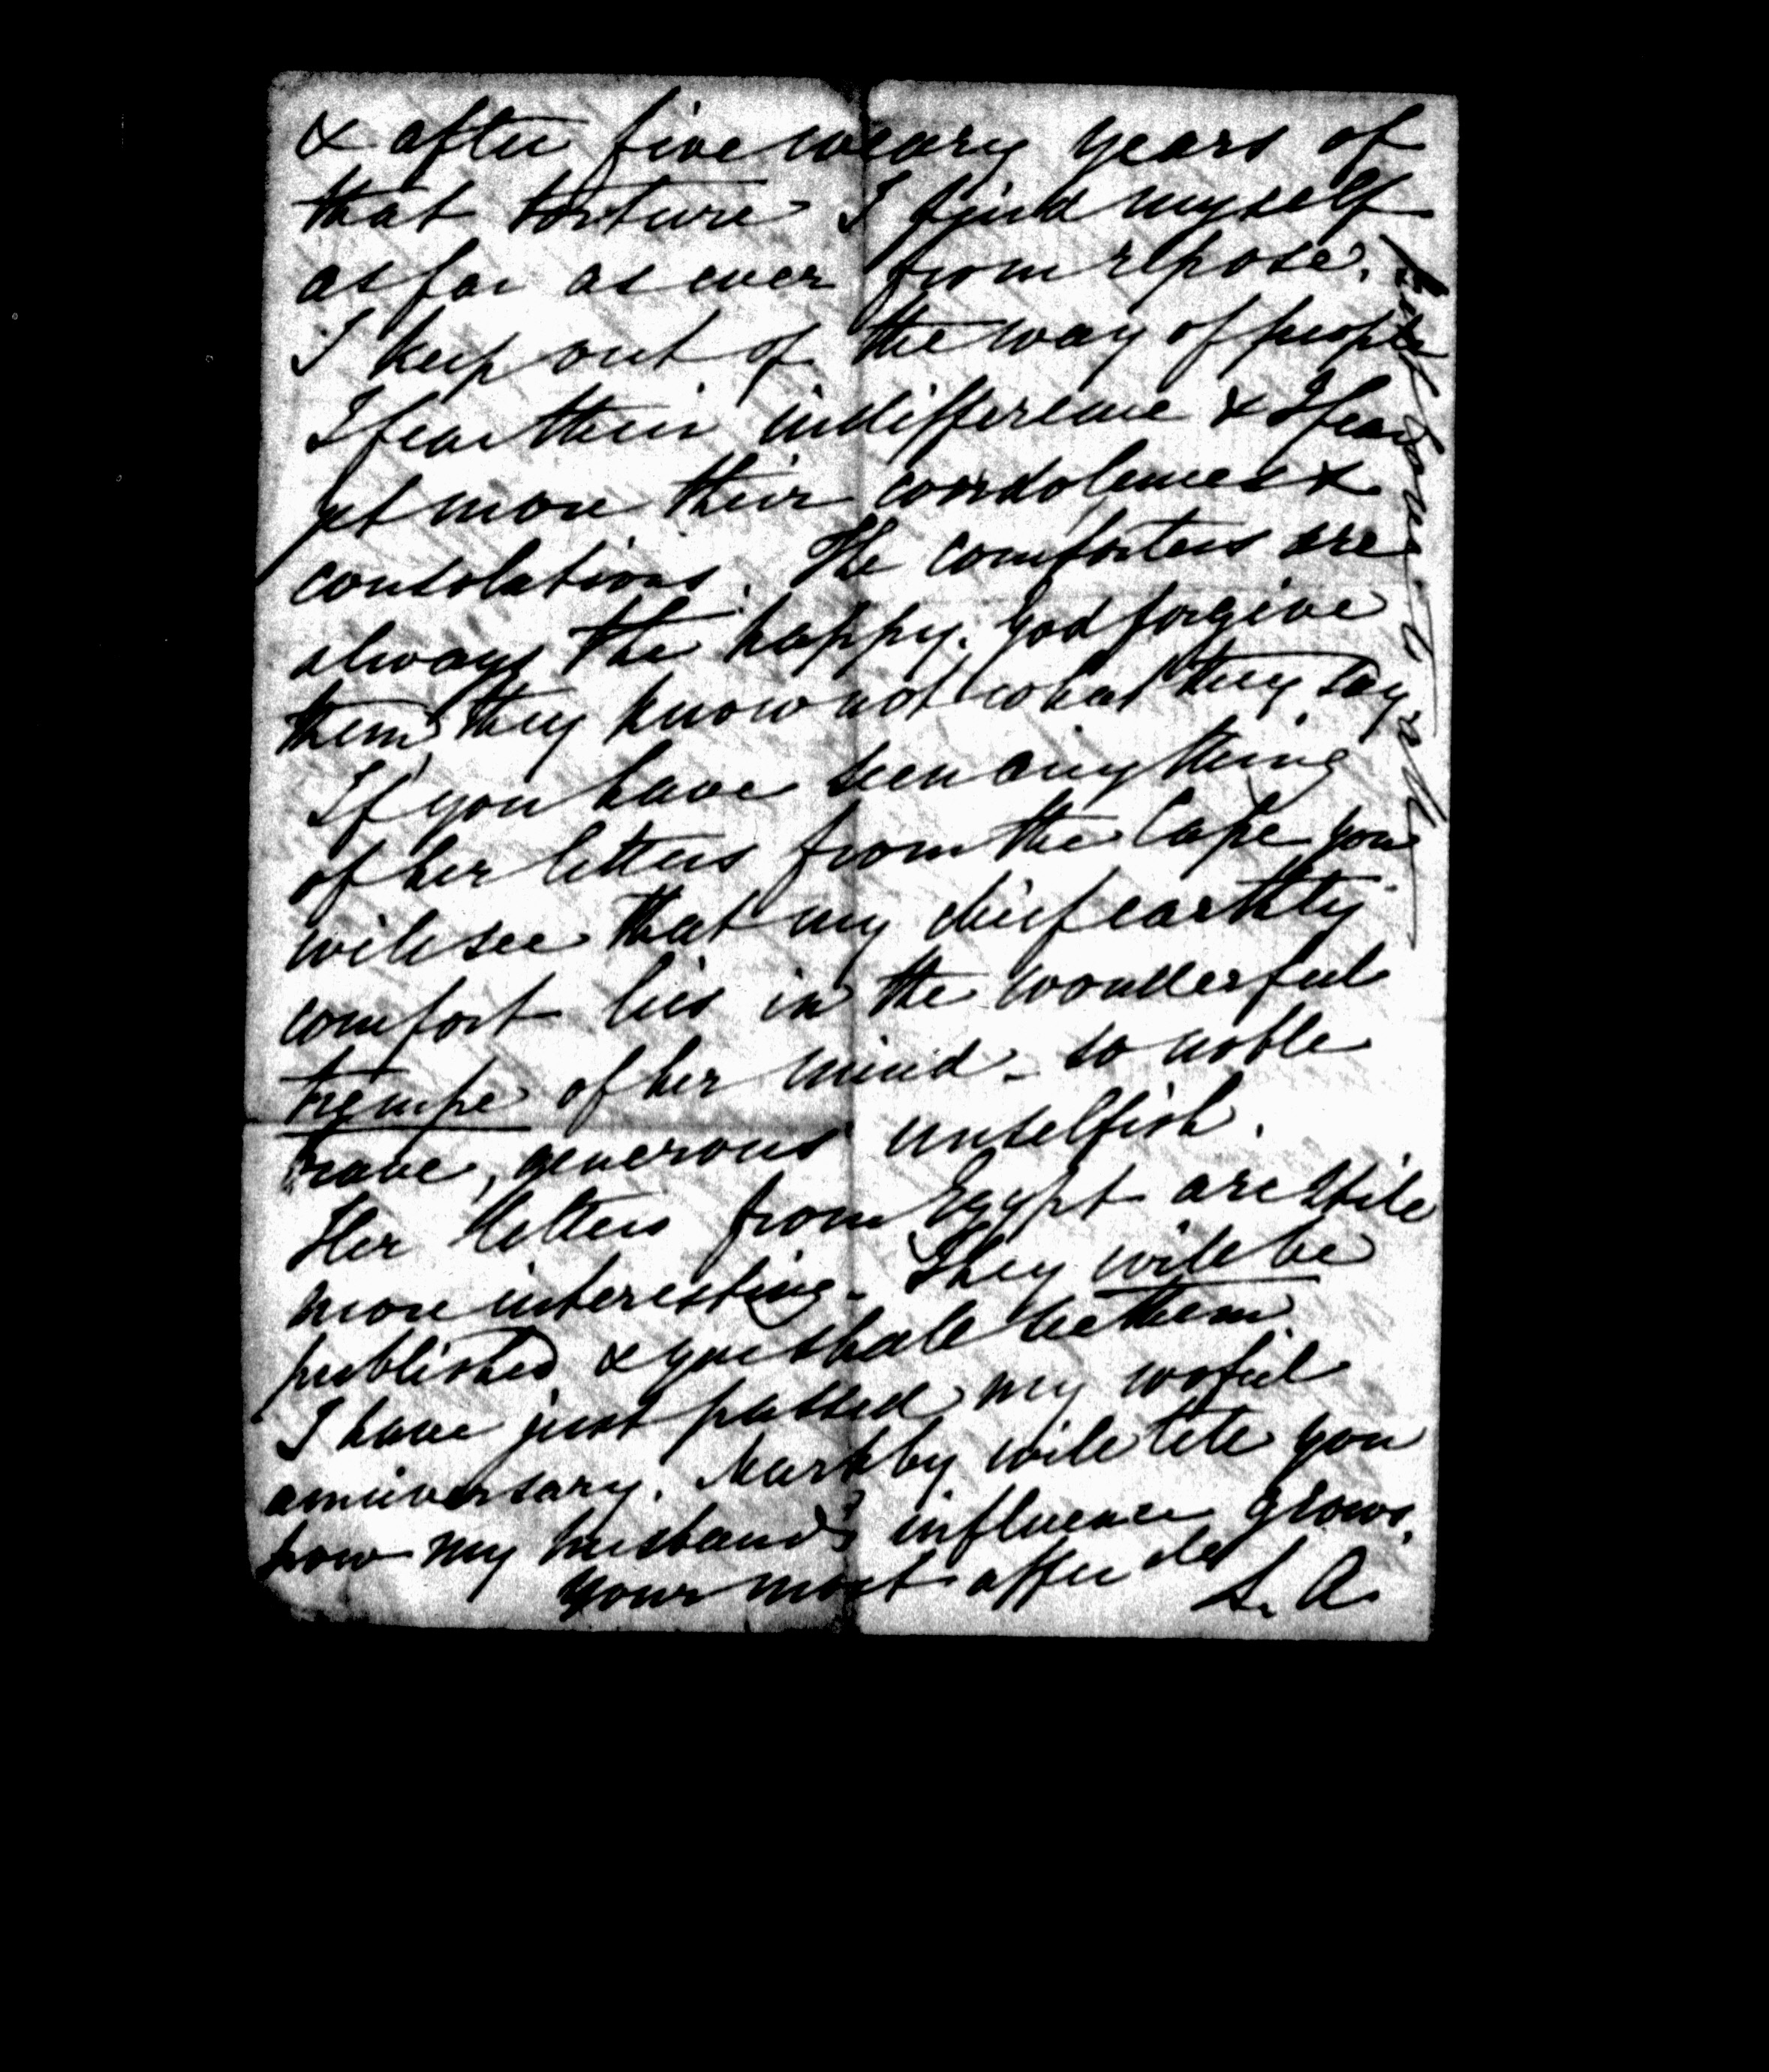 & after five weary years of
that torture I find myself
as far as ever from repose.
I keep out of the way of people
I fear their indifference & I fear
yet more their condolences &
consolations. The comforters are
always the happy. God forgive
them, they know not what they say
If you have seen any thing
of her letters from the Cape you
will see that my chief earthly
comfort lies in the wonderful
trempe of her mind - so noble
brave, generous unselfish.
Her letters from Egypt are still
more interesting - They will be
published & you shall see them
I have just passed my woful
anniversary. Markby will tell you
how my husband's influence grows.
Your most affec
S. A.